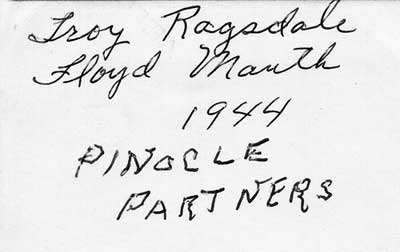 Troy Ragsdale
Floyd Mauth
1944
PINOCLE
PARTNERS